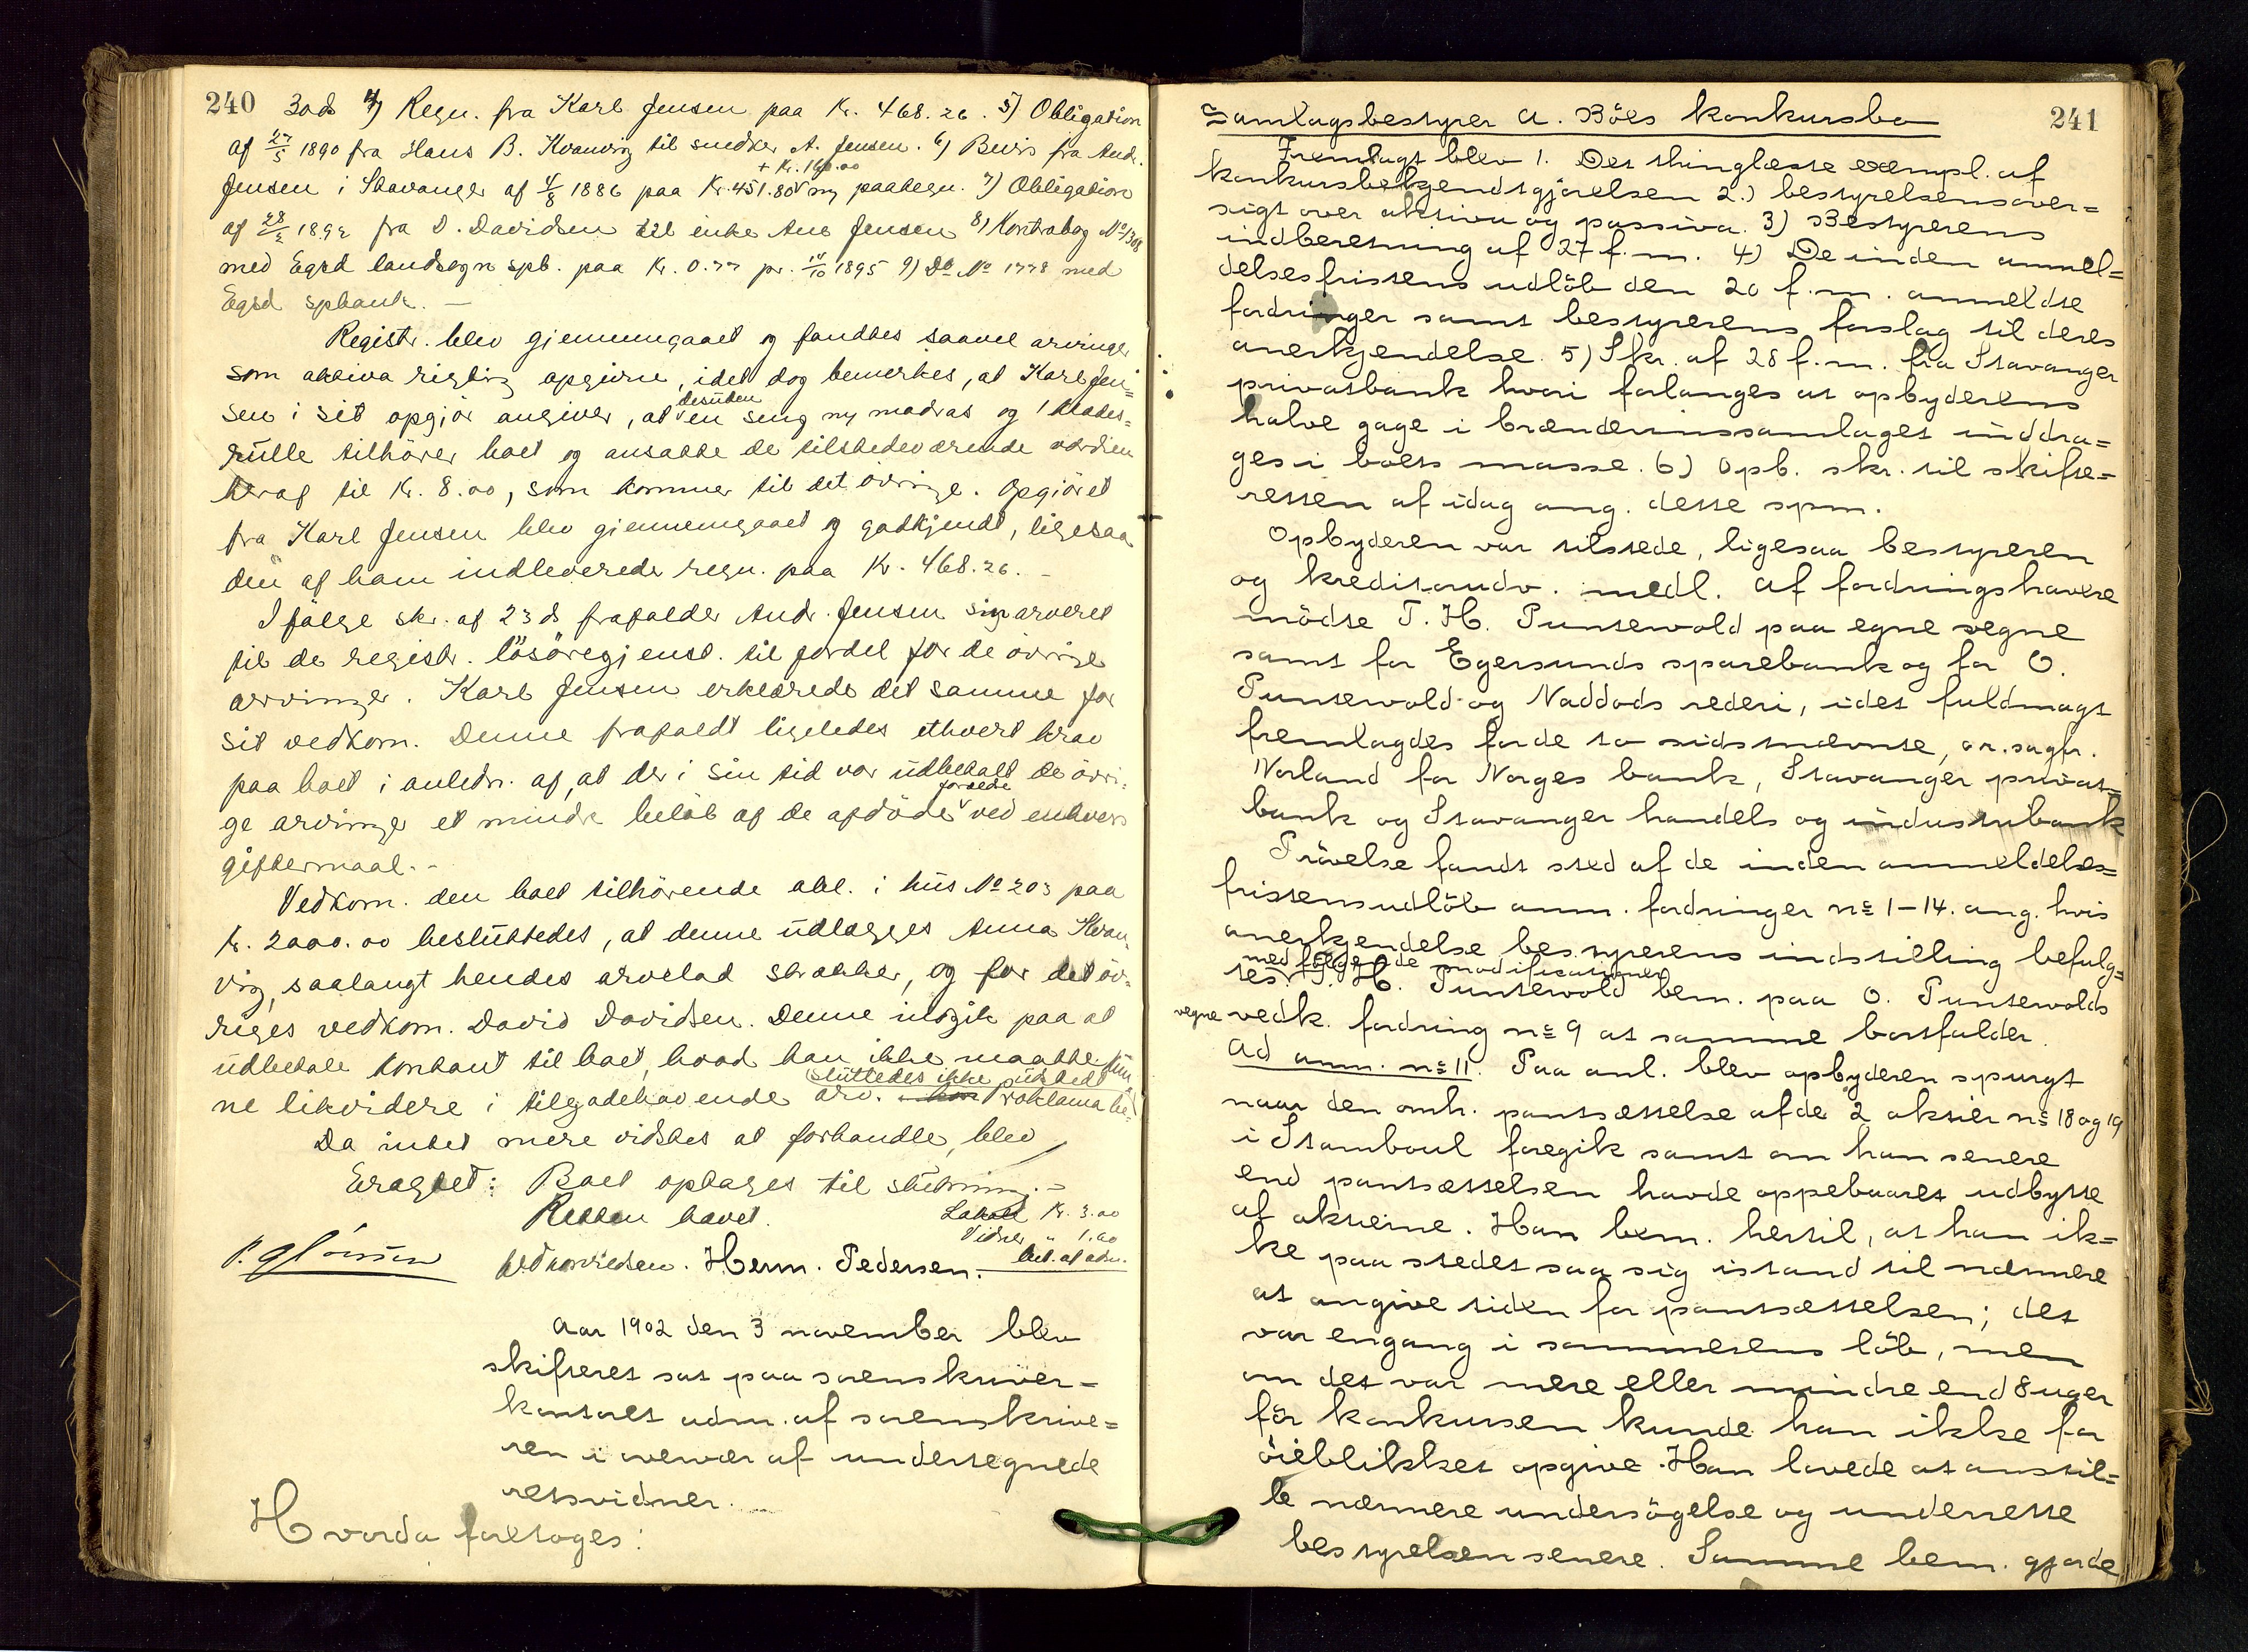 240 30ds 4) Regn. fra Karl Jensen paa Kr. 468.26. 5) Obligation
af 27/5 1890 fra Hans B. Kvanvig til snedker A. Jensen. 6) Bevis fra Andr.
+ Kr. 160.00
Jensen i Stavanger af 4/8 1886 paa Kr. 451.80 paategn. 7) Obligation
af 28/2 1892 fra D. Davidsen til enke Ane Jensen 8) Kontrabog No 1308
med Egsd landsogn spb. paa Kr. 0.77 pr. 14/10 1895 9) Do No 1778 med
Egsd spbank. —
Registr. blev gjennemgaaet og fandtes saavel arvinger
som aktiva rigtig opgivne, idet dog bemerkes, at Karl Jen=
desuden
sen i sit opgjør angiver, at en seng ny madras og 1 klædes=
rulle tilhører boet og ansatte de tilstedeværende værdien
heraf til Kr. 8.00, som kommer til det øvrige. Opgjøret
fra Karl Jensen blev gjennemgaaet og godkjendt, ligesaa
den af ham indleverede regn. paa Kr. 468.26. —
Ifølge skr. af 23 ds frafalder Andr. Jensen sin arveret
til de registr. løsøregjenst. til fordel for de øvrige
arvinger. Karl Jensen erklærede det samme for
sit vedkom. Denne frafaldt ligeledes ethvert krav
paa boet i anledn. af, at der i sin tid var udbetalt de øvri=
forælde
ge arvinger et mindre beløb af de afdøde ved enhvers
giftermaal. -
Vedkom. den boet tilhørende obl. i hus No 203 paa
Kr. 2000.00 besluttedes, at denne udlægges Anna Kvan
vig, saalangt hendes arvelod strækker, og for det øv=
riges vedkom. David Davidsen. Denne indgik paa at
udbetale kontant til boet, hvad han ikke maatte kun
sluttedes ikke udstedt
ne likvidere i tilgodehavende arv. Proklama be=
Da intet mere vidstes at forhandle, blev
Eragtet: Boet optages til slutning. —
Retten hævet.
Lokale Kr. 3.00
Vidner " 1.60
Herm. Pedersen.
Aar 1902 den 3 november blev
skifteret sat paa sorenskriver=
kontoret adm. af sorenskrive=
ren i overvær af undertegnede
retsvidner.
Hvorda foretoges:
241
Samlagsbestyrer A. Böes konkursbo
Fremlagt blev 1. Det thinglæste exempl. af
konkursbekjendtgjørelsen 2.) bestyrelsens over=
sigt over aktiva og passiva. 3) Bestyrerens
indberetning af 27 f. m. 4) De inden anmel=
delsesfristens udlöb den 20 f. m. anmeldte
fordringer samt bestyrerens forslag til deres
anerkjendelse. 5) Skr. af 28 f. m. fra Stavanger
privatbank hvori forlanges at opbyderens
halve gage i brændevinssamlaget inddra=
ges i boets masse. 6) Opb. skr. til skifte=
retten af idag ang. dette spm.
Opbyderen var tilstede, ligesaa bestyreren
og kreditorudv. medl. Af fordringshavere
mödte T. H. Puntervold paa egne vegne
samt for Egersunds sparebank og for O.
Puntervold og Naddods rederi, idet fuldmagt
fremlagdes for de to sidstnævnte, o.r.sagfr.
Norland for Norges bank, Stavanger privat=
bank og Stavanger handels og industribank
Prövelse fandt sted af de inden anmeldelses=
fristens udlöb anm. fordringer no 1-14. ang. hvis
anerkjendelse bestyrerens indstilling befulg=
med fölgende modificationer
tes. T. H. Puntervold bem. paa O. Puntervolds
vegne vedk. fordring no 9 at samme bortfalder.
Ad anm. no 11. Paa anl. blev opbyderen spurgt
naar den omh. pantsættelse af de 2 aktier no 18 og 19
i Stamboul foregik samt om han senere
end pantsættelsen havde oppebaaret udbytte
af aktierne. Han bem. hertil, at han ik=
ke paa stedet saa sig istand til nærmere
at angive tiden for pantsættelsen; det
var engang i sommerens löb, men
om det var mere eller mindre end 8 uger
för konkursen kunde han ikke for
öieblikket opgive. Han lovede at anstil=
le nærmere undersögelse og underrette
bestyrelsen senere. Samme bem. gjorde